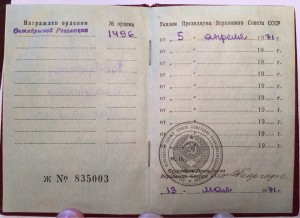 Награжден орденом
№ ордена
Октябрьской Революции
1496
Ж № 835003
Указом Президиума Верховного Совета СССР
от „ 5 “ апреля 1971 г.
от „ “ 19 г.
от „ “ 19 г.
от „ “ 19 г.
от „ “ 19 г.
от „ “ 19 г.
от „ “ 19 г.
от „ “ 19 г.
М. П.
Секретарь Президиума
Верховного Совета
13 мая 1971 г.